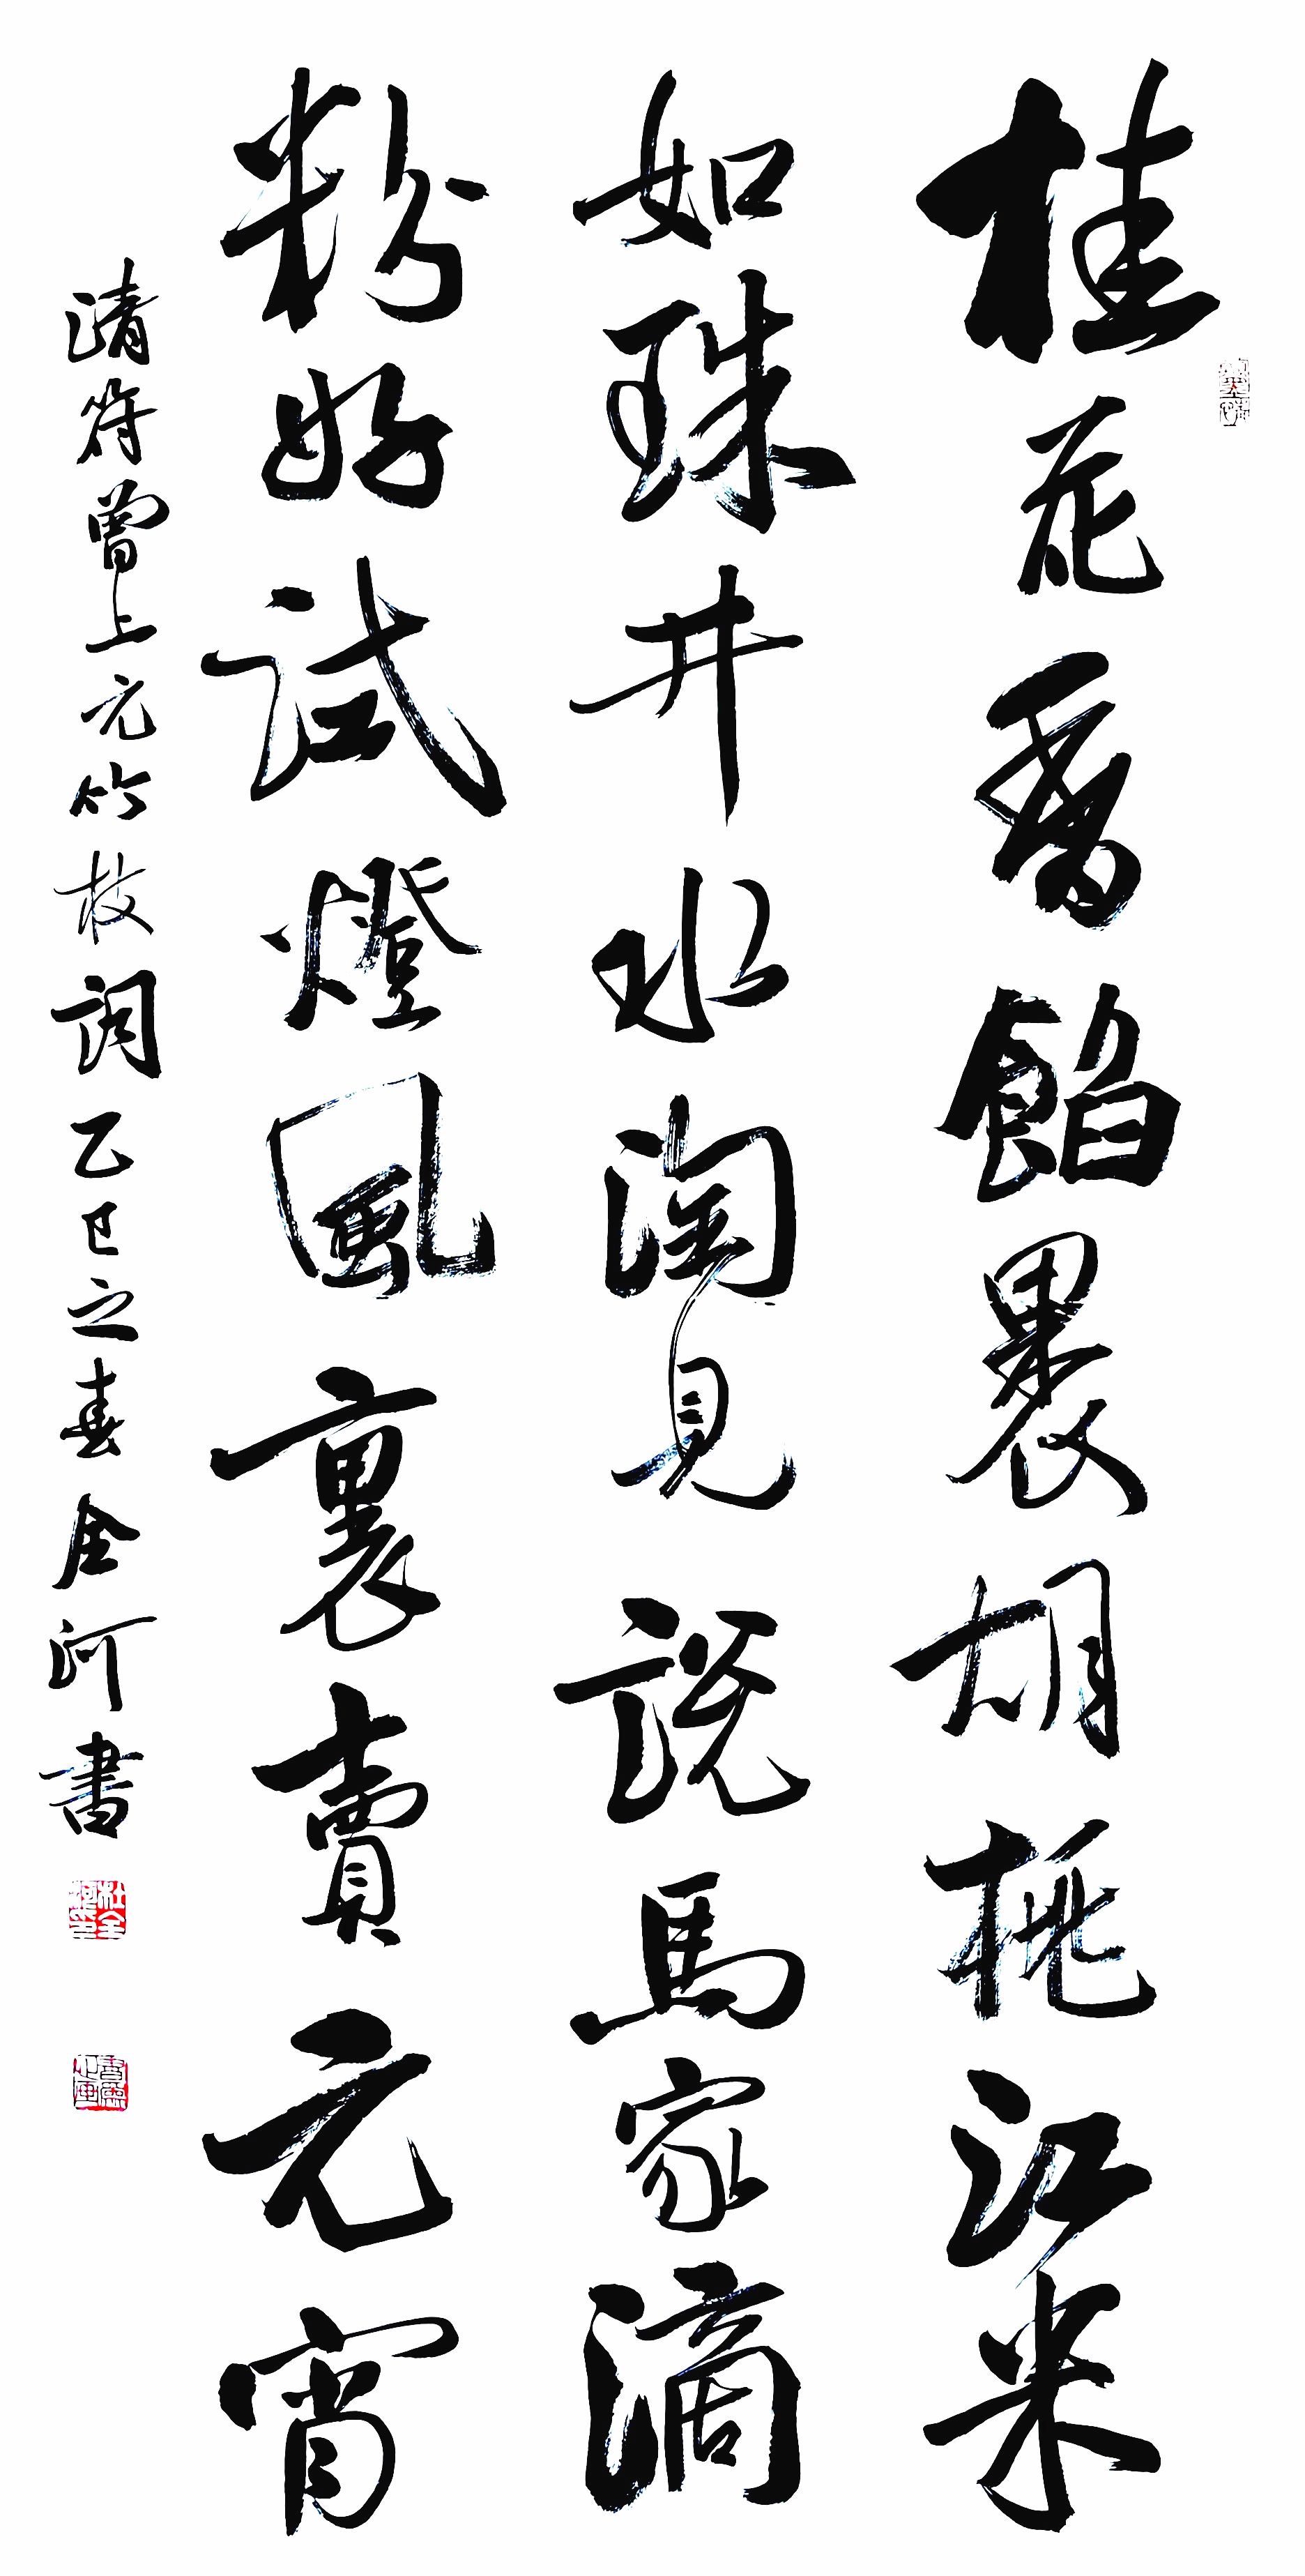 桂花香餡裹胡桃江米
如珠井水淘見說馬家滴
粉好試燈風裏賣元宵
清符曾上元竹枝詞乙巳之春全河書